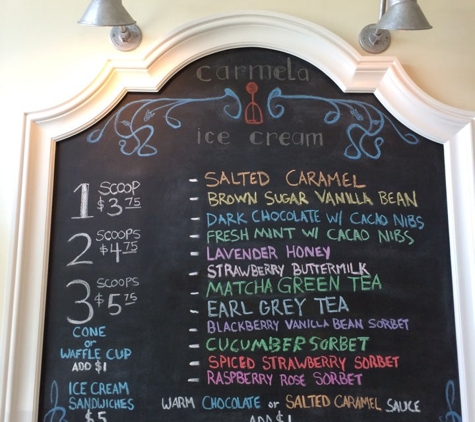 carmela
ice cream
1 SCOOP
$3.75
2 SCOOPS
$4.75
3 SCOOPS
$5.75
CONE
or
WAFFLE CUP
ADD $1
ICE CREAM
SANDWICHES
$5
- SALTED CARAMEL
- BROWN SUGAR VANILLA BEAN
- DARK CHOCOLATE W/ CACAO NIBS
- FRESH MINT W/ CACAO NIBS
- LAVENDER HONEY
- STRAWBERRY BUTTERMILK
- MATCHA GREEN TEA
- EARL GREY TEA
- BLACKBERRY VANILLA BEAN SORBET
- CUCUMBER SORBET
- SPICED STRAWBERRY SORBET
- RASPBERRY ROSE SORBET
WARM CHOCOLATE or SALTED CARAMEL SAUCE
ADD $1